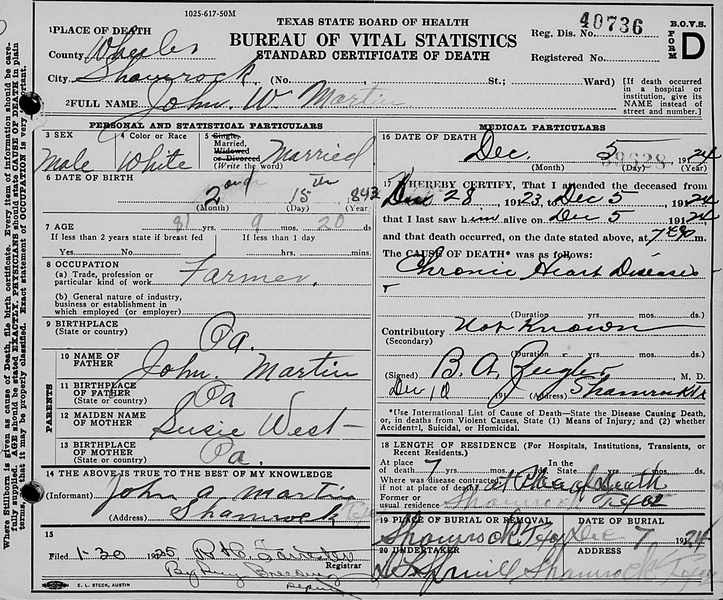 1025-617-50M
TEXAS STATE BOARD OF HEALTH
BUREAU OF VITAL STATISTICS
STANDARD CERTIFICATE OF DEATH
Reg. Dis. No. 40736
Registered No.
B.O.V.S.
FORM D
1PLACE OF DEATH
County Wheeler
City Shamrock (No. St.; Ward)
[If death occurred in a hospital or institution, give its NAME instead of street and number.]
2FULL NAME John. W Martin
PERSONAL AND STATISTICAL PARTICULARS
3 SEX Male
4 Color or Race White
5 Single, Married, Widowed or Divorced (Write the word) Married
6 DATE OF BIRTH
2 15th 1843
(Month) (Day) (Year)
7 AGE 81 yrs. 9 mos. 20 ds.
If less than 2 years state if breast fed
Yes No
If less than 1 day
hrs. mins.
8 OCCUPATION
(a) Trade, profession or particular kind of work Farmer.
(b) General nature of industry, business or establishment in which employed (or employer)
9 BIRTHPLACE
(State or country) Pa.
PARENTS
10 NAME OF FATHER John. Martin
11 BIRTHPLACE OF FATHER (State or country) Pa
12 MAIDEN NAME OF MOTHER Susie West
13 BIRTHPLACE OF MOTHER (State or country) Pa.
14 THE ABOVE IS TRUE TO THE BEST OF MY KNOWLEDGE
(Informant) John A. Martin
(Address) Shamrock
15
Filed 1-30 1925
Registrar
E. L. STECK, AUSTIN
MEDICAL PARTICULARS
16 DATE OF DEATH
Dec. 5 1924
(Month) (Day) (Year)
17 I HEREBY CERTIFY, That I attended the deceased from
28, 1923, Dec 5, 1924
that I last saw him alive on Dec 5 1924
and that death occurred, on the date stated above, at m.
The CAUSE OF DEATH* was as follows:
Chronic Heart Diseases
(Duration) yrs. mos. ds.
Contributory Not Known
(Secondary)
(Duration) yrs. mos. ds.
(Signed) B. A. Zeigler, M. D.
Dec 10 191 (Address) Shamrock
*Use International List of Cause of Death—State the Disease Causing Death, or, in deaths from Violent Causes, State (1) Means of Injury; and (2) whether Accident!, Suicidal, or Homicidal.
18 LENGTH OF RESIDENCE (For Hospitals, Institutions, Transients, or Recent Residents.)
At place of death 7 yrs. mos. ds. In the State yrs. mos. ds.
Where was disease contracted if not at place of death? At Place of death
Former or usual residence Shamrock Texas
19 PLACE OF BURIAL OR REMOVAL Shamrock Tex
DATE OF BURIAL Dec 7 1924
20 UNDERTAKER
ADDRESS Shamrock Texas